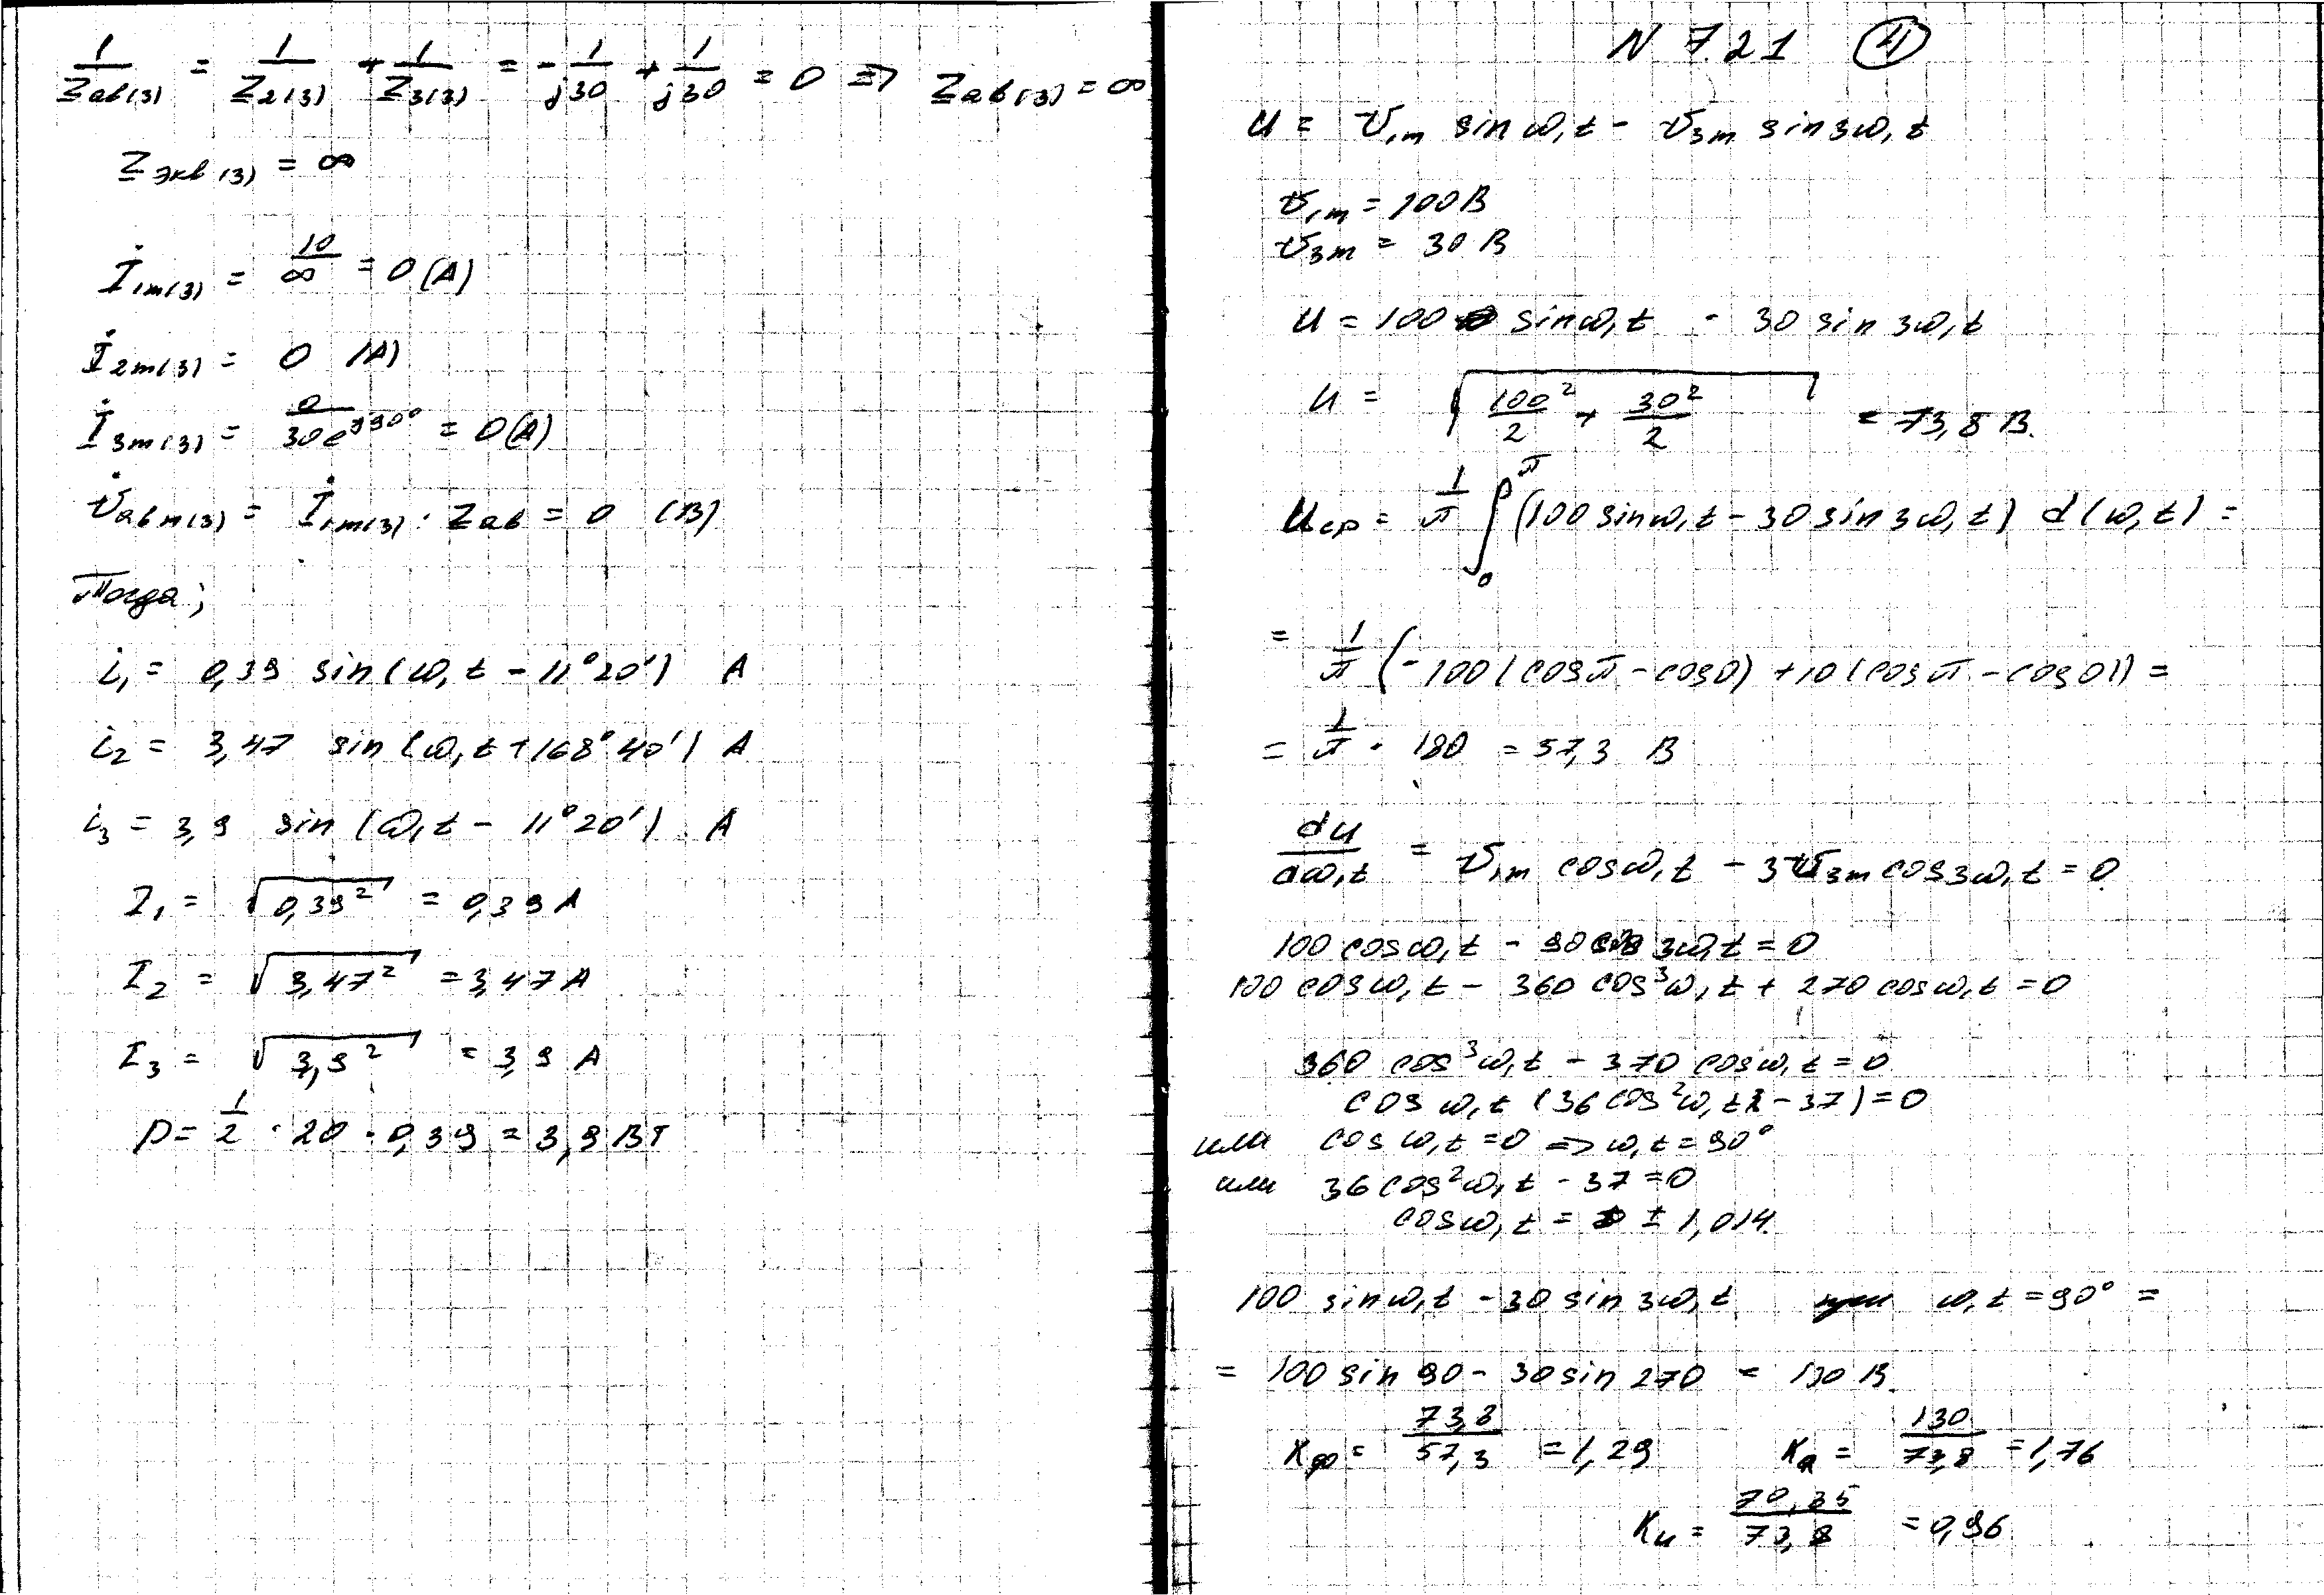 1/Z ab(3) = 1/Z 2(3) + 1/Z 3(3) = -1/j30 + 1/j30 = 0 => Z ab(3) = ∞
Z экв(3) = ∞
İ1m(3) = 10/∞ = 0 (A)
İ2m(3) = 0 (A)
İ3m(3) = 0/30e^j90° = 0 (A)
U̇abm(3) = İ1m(3) · Zab = 0 (В)
Тогда;
i1 = 0,39 sin(ω1t - 11°20') A
i2 = 3,47 sin(ω1t + 168°40') A
i3 = 3,9 sin(ω1t - 11°20') A
I1 = √0,39² = 0,39 A
I2 = √3,47² = 3,47 A
I3 = √3,9² = 3,9 A
P = 1/2 · 20 · 0,39 = 3,9 Вт
N 7.21 (4)
u = U1m sin ω1t - U3m sin 3ω1t
U1m = 100 В
U3m = 30 В
u = 100 sin ω1t - 30 sin 3ω1t
u = √(100²/2 + 30²/2) = 73,8 В.
Uср = 1/π ∫₀^π (100 sin ω1t - 30 sin 3ω1t) d(ω1t) =
= 1/π (-100 (cos π - cos 0) + 10 (cos π - cos 0)) =
= 1/π · 180 = 57,3 В
du/dω1t = U1m cos ω1t - 3U3m cos 3ω1t = 0
100 cos ω1t - 90 cos 3ω1t = 0
100 cos ω1t - 360 cos³ω1t + 270 cos ω1t = 0
360 cos³ω1t - 370 cos ω1t = 0
cos ω1t (36 cos²ω1t - 37) = 0
или cos ω1t = 0 => ω1t = 90°
или 36 cos²ω1t - 37 = 0
cos ω1t = ± 1,014
100 sin ω1t - 30 sin 3ω1t при ω1t = 90° =
= 100 sin 90 - 30 sin 270 = 130 В.
Kф = 73,8/57,3 = 1,29 Kа = 130/73,8 = 1,76
Kи = 70,35/73,8 = 0,96